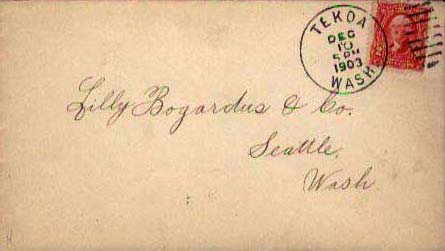 TEKOA
DEC
10
5 PM
1903
WASH
Lilly Bogardus & Co.
Seattle,
Wash